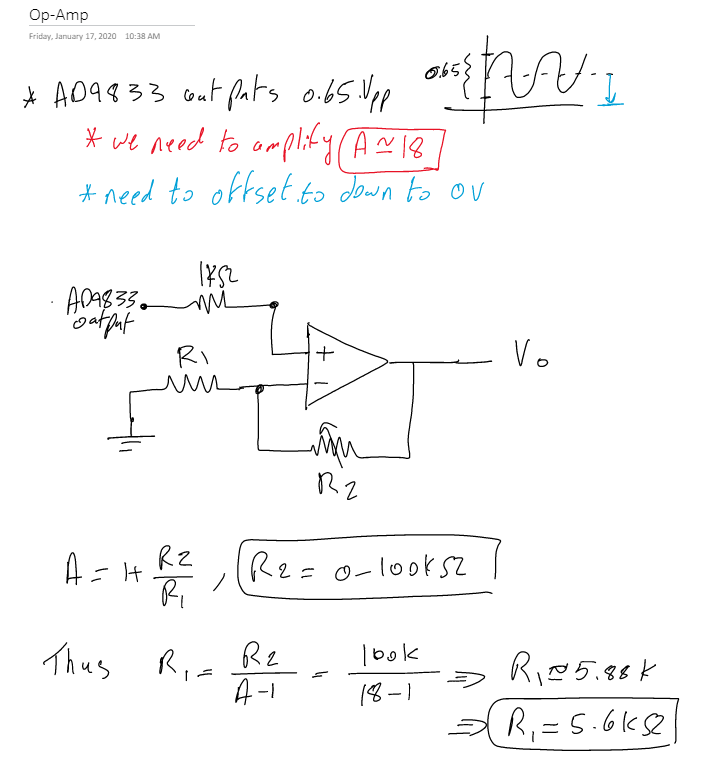 Op-Amp
Friday, January 17, 2020 10:38 AM
* AD9833 outputs 0.65 Vpp
0.65
* we need to amplify A ≃ 18
* need to offset to down to 0V
1kΩ
AD9833
output
R1
+
−
Vo
R2
A = 1+ R2/R1 , R2 = 0-100kΩ
Thus R1 = R2/A-1 = 100k/18-1 ⇒ R1 ≃ 5.88k
⇒ R1 = 5.6kΩ